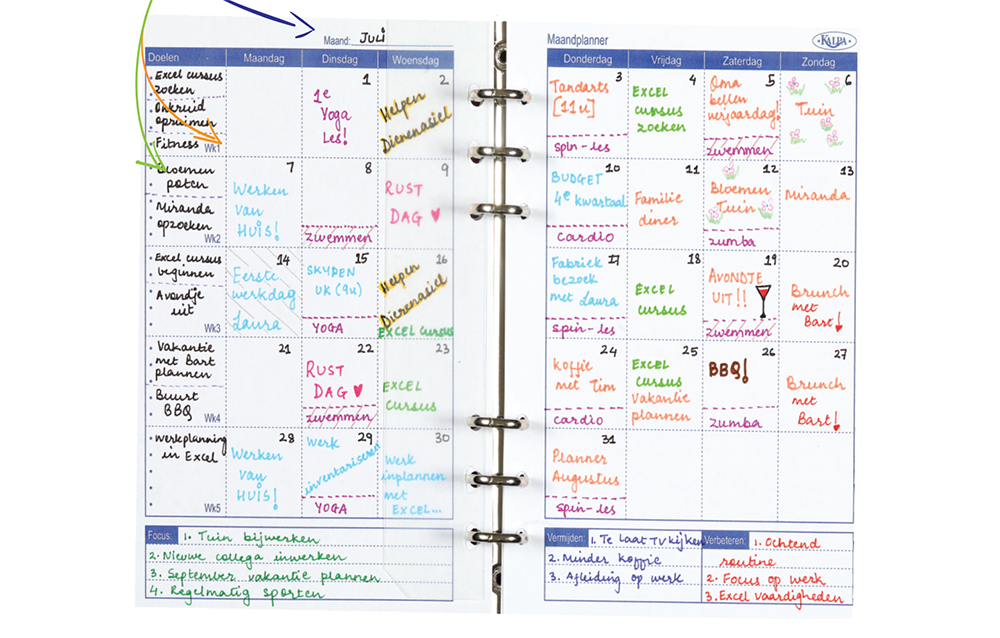 Maand: JULI
Doelen Maandag Dinsdag Woensdag
Excel cursus
zoeken
Onkruid
opruimen
Fitness
Wk1
1
1e
Yoga
Les!
2
Helpen
Dierenasiel
Bloemen
poten
Miranda
opzoeken
Wk2
7
Werken
van
HUIS!
8
zwemmen
9
RUST
DAG
Excel cursus
beginnen
Avondje
uit
Wk3
14
Eerste
werkdag
Laura
15
SKYPEN
UK (9u)
YOGA
16
Helpen
Dierenasiel
EXCEL CURSUS
Vakantie
met Bart
plannen
Buurt
BBQ
Wk4
21
22
RUST
DAG
zwemmen
23
EXCEL
CURSUS
Werkplanning
in Excel
Wk5
28
Werken
van
HUIS!
29
Werk
inventariseren
YOGA
30
Werk
inplannen
met
EXCEL...
Focus: 1. Tuin bijwerken
2. Nieuwe collega inwerken
3. September vakantie plannen
4. Regelmatig sporten
Maandplanner
KALPA
Donderdag Vrijdag Zaterdag Zondag
3
Tandarts
[11u]
spin-les
4
EXCEL
cursus
zoeken
5
Oma
bellen
verjaardag!
zwemmen
6
Tuin
10
BUDGET
4e kwartaal
cardio
11
Familie
diner
12
Bloemen
Tuin
zumba
13
Miranda
17
Fabriek
bezoek
met Laura
spin-les
18
EXCEL
cursus
19
AVONDJE
UIT!!
zwemmen
20
Brunch
met
Bart!
24
koffie
met Tim
cardio
25
EXCEL
CURSUS
vakantie
plannen
26
BBQ!
zumba
27
Brunch
met
Bart!
31
Planner
Augustus
spin-les
Vermijden: 1. Te laat TV kijken
2. Minder koffie
3. Afleiding op werk
Verbeteren: 1. Ochtend
routine
2. Focus op werk
3. Excel vaardigheden